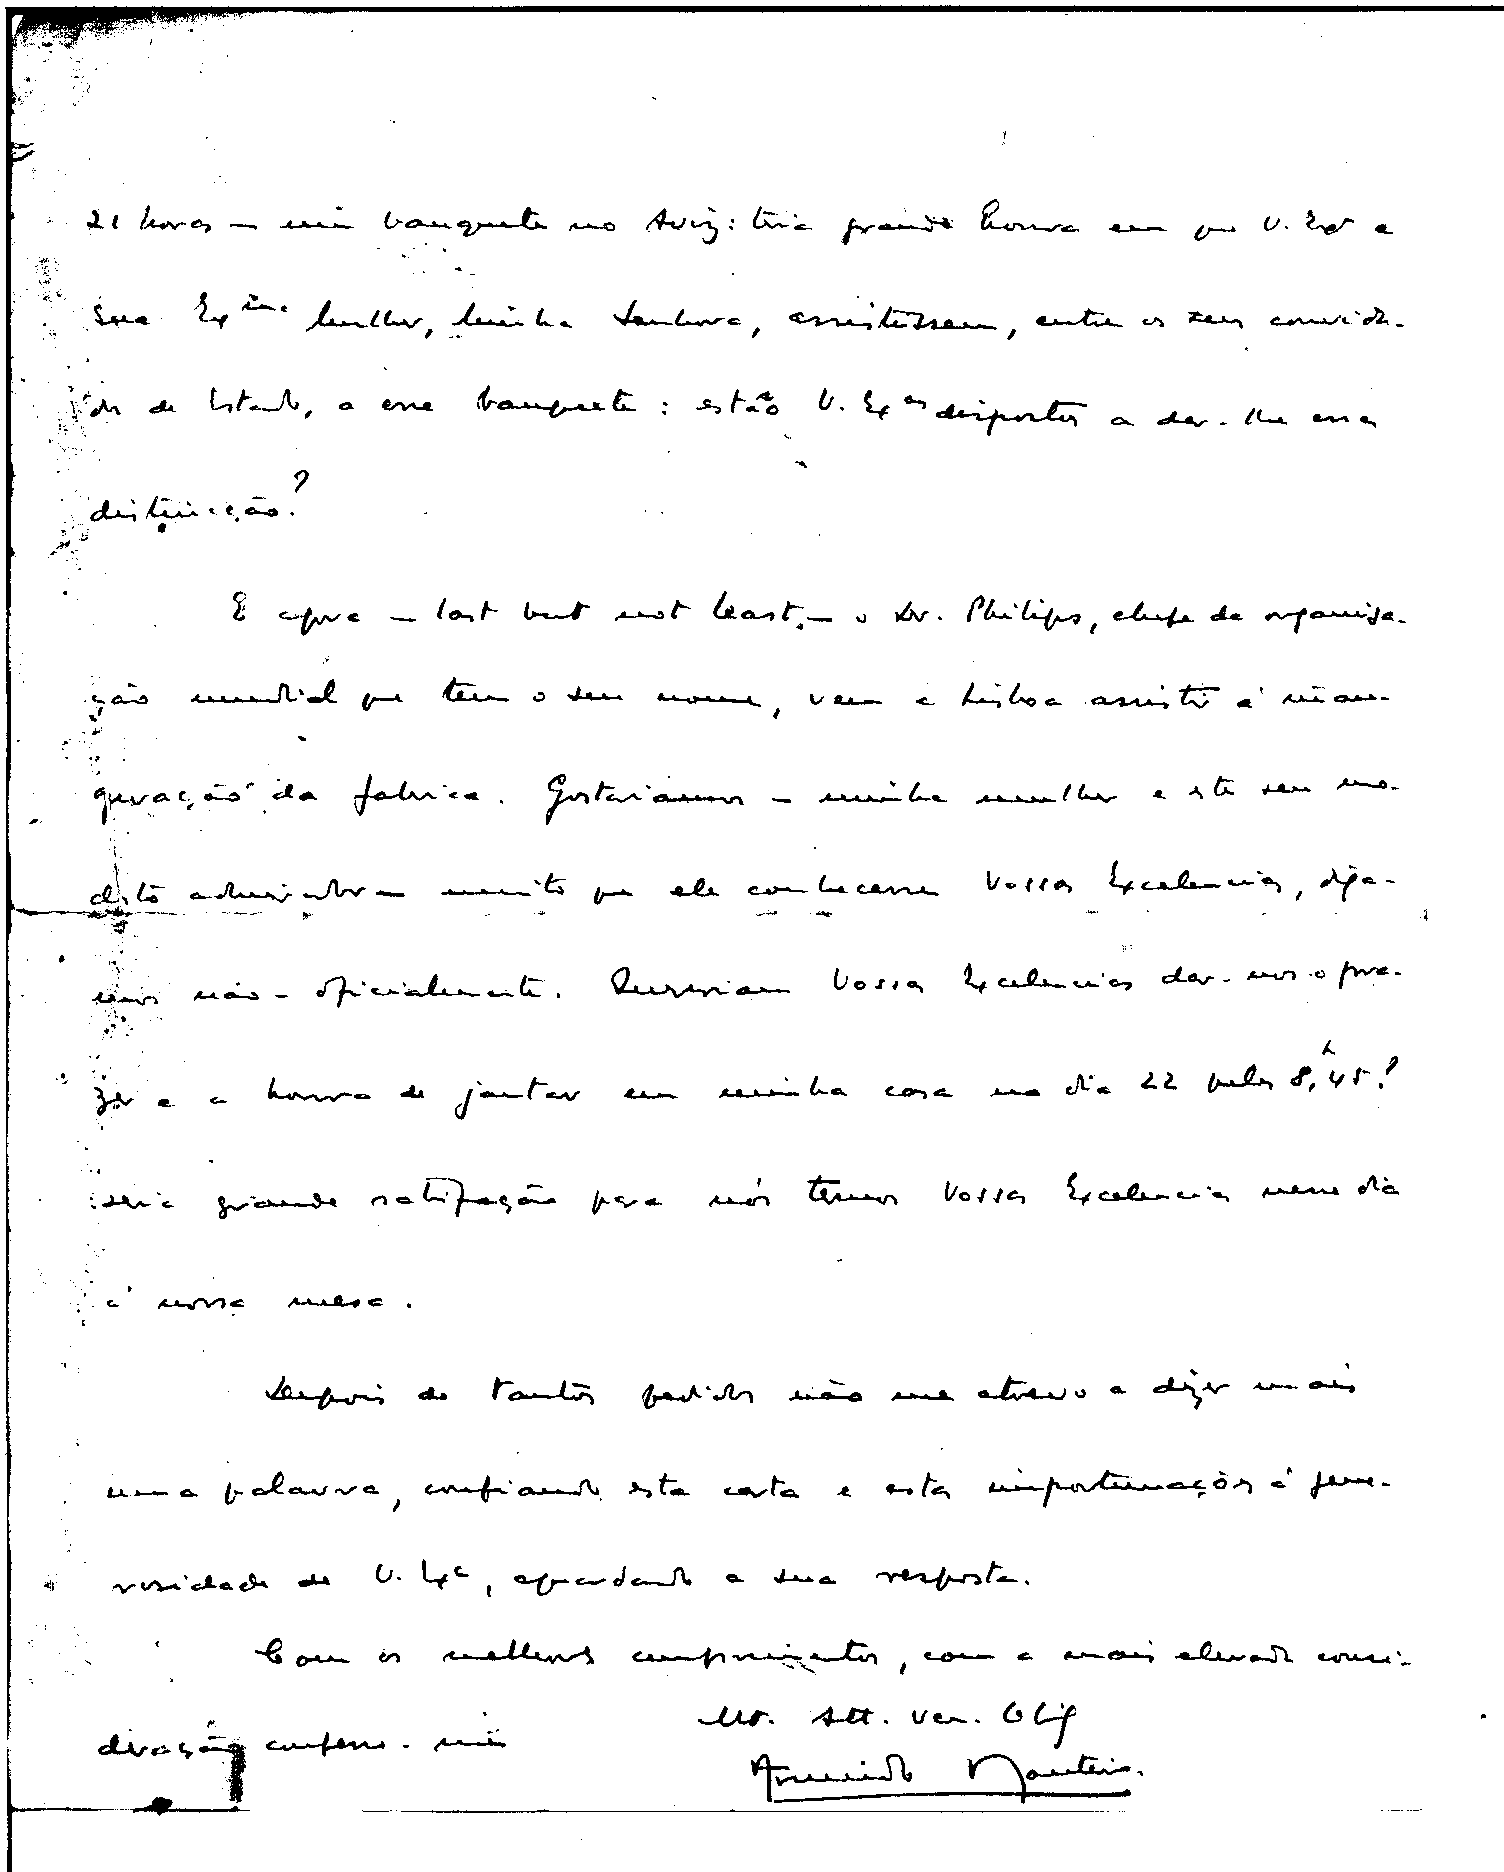 21 horas – um banquete no Aviz: teria grande honra em que V. Exª e
Sua Exma Mulher, Minha Senhora, assistissem, entre os seus convida-
dos de Estado, a esse banquete: estão V. Exas dispostos a dar-lhe essa
distincção?
E agora – last but not least, – o Dr. Philips, chefe da organisa-
ção mundial que tem o seu nome, vem a Lisboa assistir á inau-
guração da fabrica. Gostariamos – minha mulher e este seu mo-
desto admirador – muito que ele conhecesse Vossas Excelencias, diga-
mos não-oficialmente. Quereriam Vossas Excelencias dar-nos o pra-
zer e a honra de jantar em minha casa no dia 22 pelas 8,h45?
Seria grande satisfação para nós termos Vossas Excelencias nesse dia
á nossa mesa.
Depois de tantos pedidos não me atrevo a dizer mais
uma palavra, confiando esta carta e estas importunações á gene-
rosidade de V. Exª, aguardando a sua resposta.
Com os melhores cumprimentos, com a mais elevada consi-
deração confesso-me
Mto. Att. Ven. Obg
Armindo Monteiro.